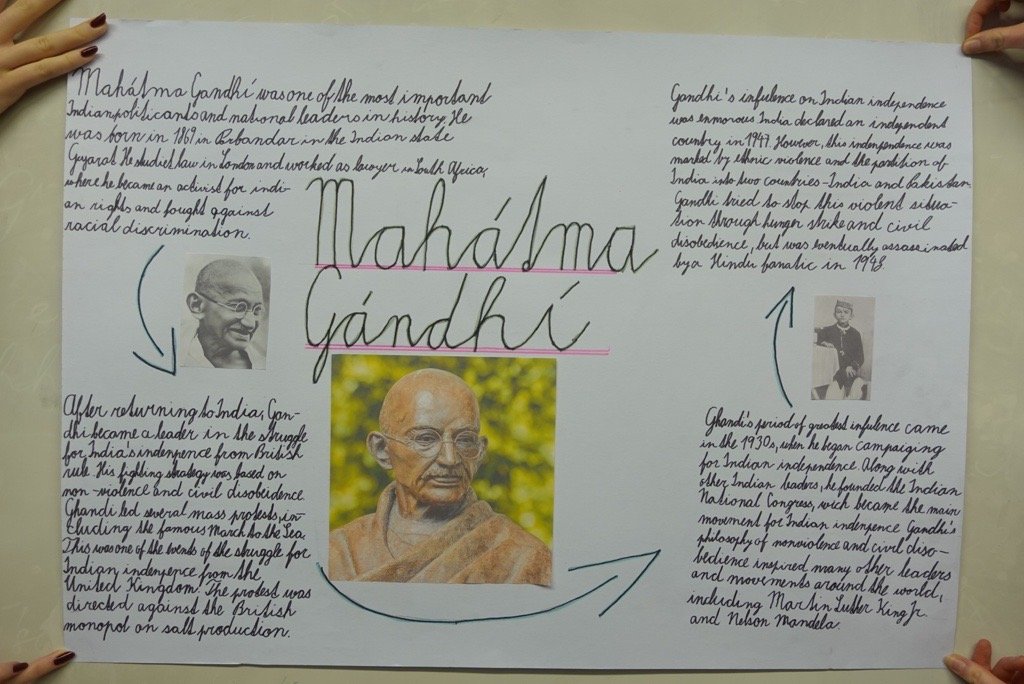 Mahátma Gandhí was one of the most important
Indian politicants and national leaders in history. He
was born in 1869 in Porbandar in the Indian state
Gujarat. He studiet law in London and worked as lawyer in South Africa,
where he became an activist for indi-
an rights and fought against
racial discrimination.
Mahátma
Gándhí
After returning to India, Gan-
dhi became a leader in the struggle
for India's indenpence from British
rule. His fighting strategy was based on
non-violence and civil disobeidence.
Ghandi led several mass protests, in-
cluding the famous March to the Sea.
This was one of the events of the struggle for
Indian indenpence from the
United Kingdom. The protest was
directed against the British
monopol on salt production.
Ghandi's period of greatest infulence came
in the 1930s, when he began campaiging
for Indian independence. Along with
other Indian leaders, he founded the Indian
National Congress, wich became the main
movement for Indian indenpence Gandhi's
philosophy of nonviolence and civil diso-
bedience inspired many other leaders
and movements around the world,
including Martin Luther King Jr.
and Nelson Mandela.
Gandhi's infulence on Indian independence
was enmorous India declared an independent
country in 1947. However, this independence was
marked by ethnic violence and the partition of
India into two countries-India and Pakistan.
Gandhi tried to stop this violent situa-
tion through hunger strike and civil
disobedience, but was eventually assassinated
by a Hindu fanatic in 1948.